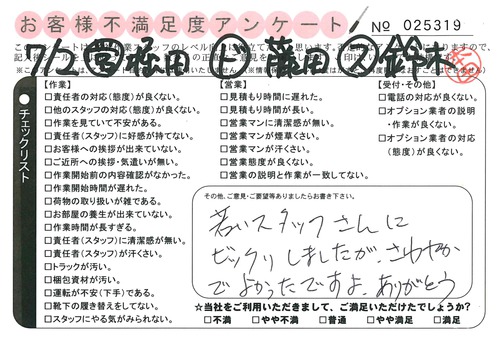 お客様不満足度アンケート
№ 025319
7/2 営 堀田 ㋛ 藤田 鈴木
チェックリスト
【作業】
□責任者の対応(態度)が良くない。
□他のスタッフの対応(態度)が良くない。
□作業を見ていて不安がある。
□責任者(スタッフ)に好感が持てない。
□お客様への挨拶が出来ていない。
□ご近所への挨拶・気遣いが無い。
□作業開始前の内容確認がなかった。
□作業開始時間が遅れた。
□荷物の取り扱いが雑である。
□お部屋の養生が出来ていない。
□作業時間が長すぎる。
□責任者(スタッフ)に清潔感が無い。
□責任者(スタッフ)が汗くさい。
□トラックが汚い。
□梱包資材が汚い。
□運転が不安(下手)である。
□靴下の履き替えをしてない。
□スタッフにやる気がみられない。
【営業】
□見積もり時間に遅れた。
□見積もり時間が長い。
□営業マンに清潔感が無い。
□営業マンが煙草くさい。
□営業マンが汗くさい。
□営業態度が良くない。
□営業の説明と作業が一致してない。
【受付・その他】
□電話の対応が良くない。
□オプション業者の説明
・作業が良くない。
□オプション業者の対応
(態度)が良くない。
その他、ご意見・ご要望等ありましたらお書き下さい。
若いスタッフさんに
ビックリしましたが、さわやか
でよかったですよ、ありがとう
☆当社をご利用いただきまして、ご満足いただけたでしょうか?
□不満 □やや不満 □普通 □やや満足 □満足